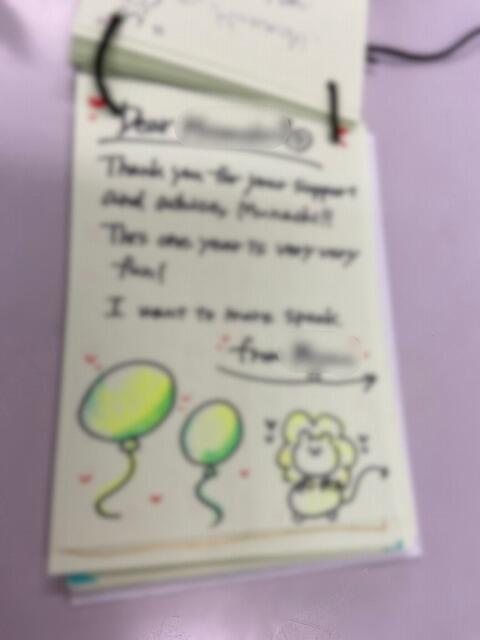 Dear
Thank you for your support
and advice, Munachi!!
This one year is very very
fun!
I want to more speak
from